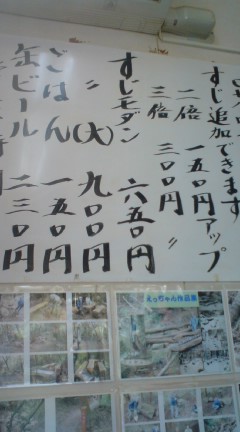 すじ追加できます
二倍 一五〇円アップ
三倍 三〇〇円 〃
すじモダン 六五〇円
〃 (大) 九〇〇円
ごはん 一五〇円
缶ビール 二三〇円